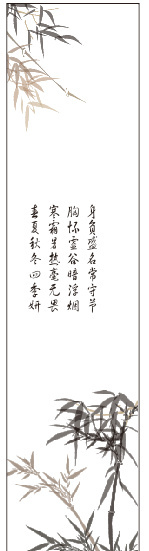 身负盛名常守节
胸怀灵谷暗浮烟
寒霜暑热毫无畏
春夏秋冬四季妍